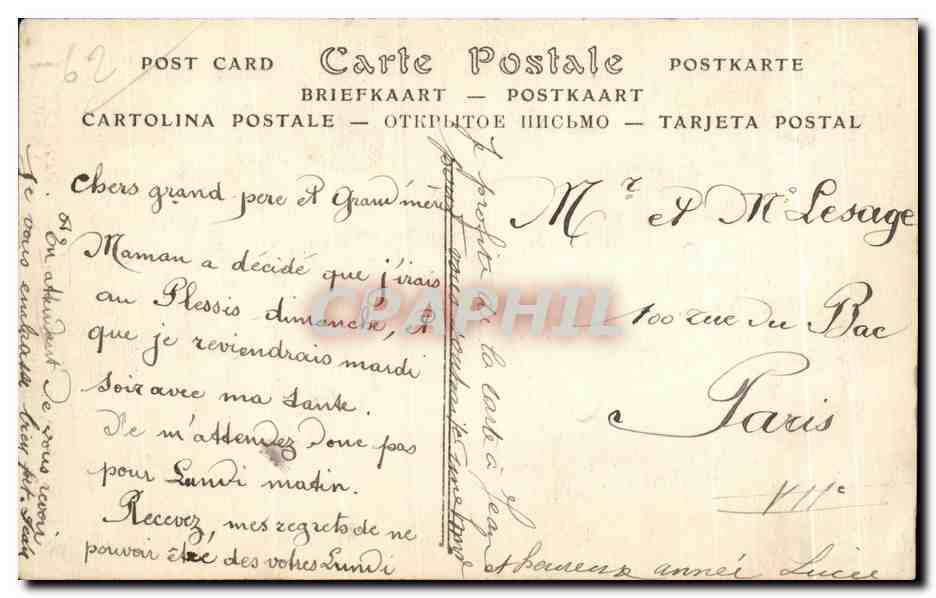 -62
POST CARD Carte Postale POSTKARTE
BRIEFKAART — POSTKAART
CARTOLINA POSTALE — ОТКРЫТОЕ ПИСЬМО — TARJETA POSTAL
Chers grand père et Grand'mère
Maman a décidé que j'irais
au Plessis dimanche, et
que je reviendrais mardi
soir avec ma tante.
Ne m'attendez donc pas
pour Lundi matin.
Recevez, mes regrets de ne
pouvoir être des votres Lundi
et En attendant de vous revoir
Je vous embrasse bien fort. Jean
Je profite de la carte à Jean
pour vous souhaiter une bonne
et heureuse année Lucie
Mr et Me Lesage
100 rue du Bac
Paris
VIIe
CPAPHIL